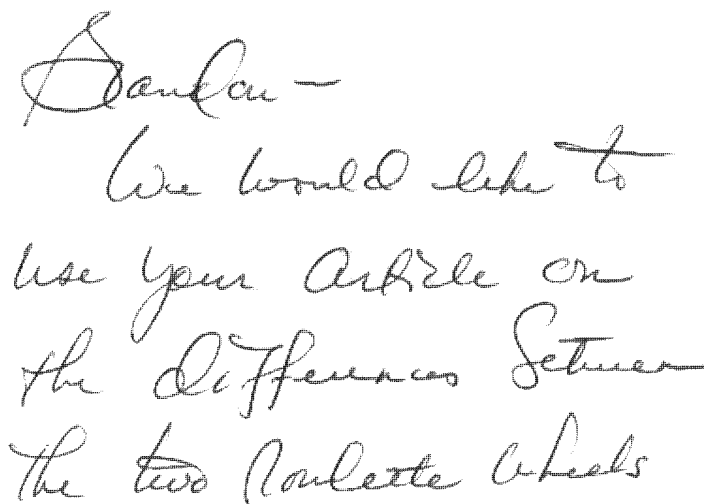 We would like to
use your article on
the differences between
the two Roulette wheels